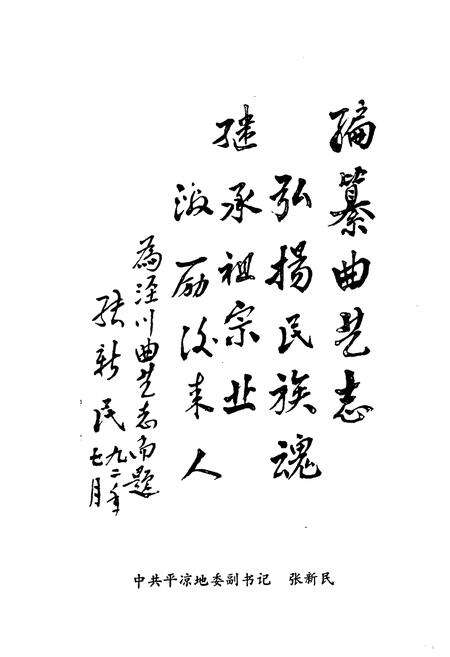 编纂曲艺志
弘扬民族魂
继承祖宗业
激励后来人
为泾川曲艺志而题
张新民
九二年
七月
中共平凉地委副书记 张新民